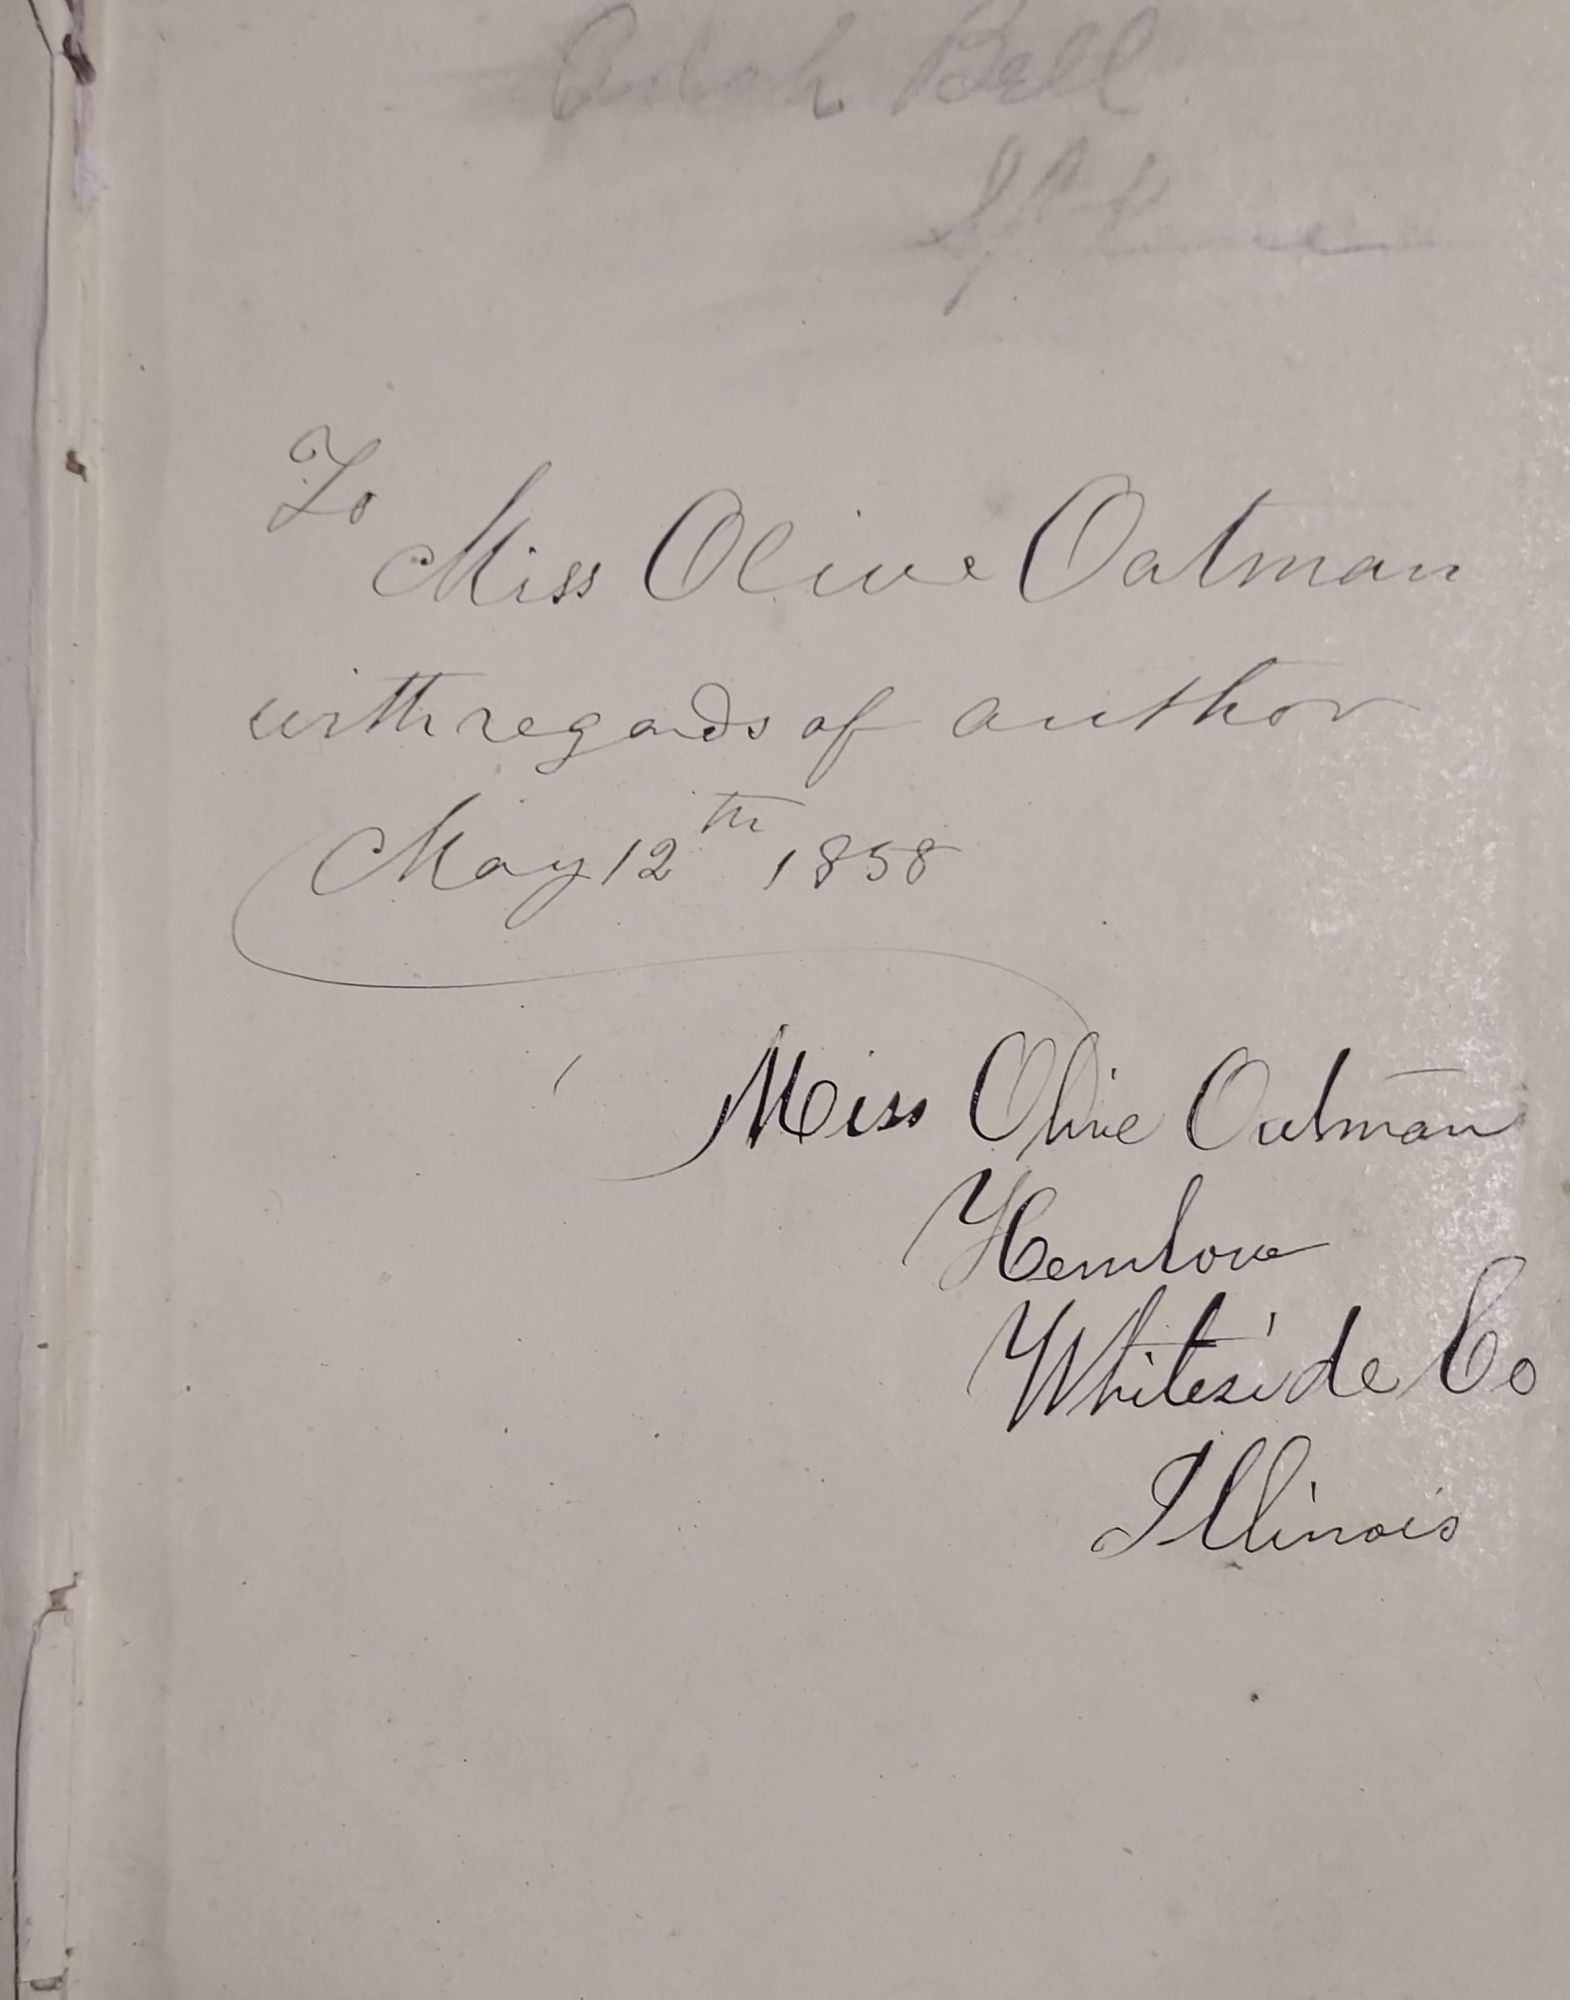 Bell
To
Miss Olive Oatman
with regards of author
May 12th 1858
Miss Olive Oatman
Whiteside Co
Illinois